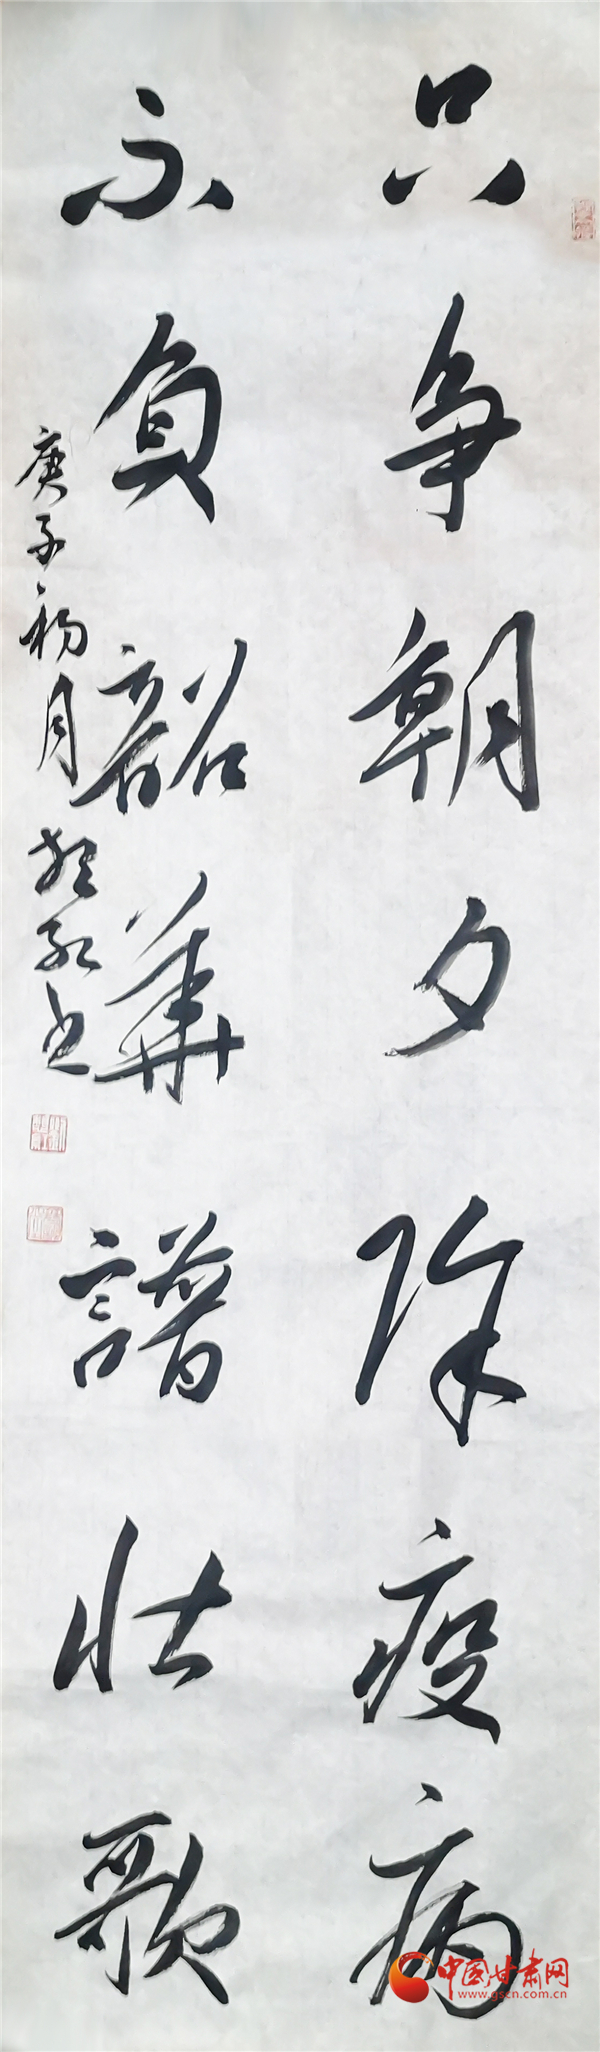 只争朝夕除疫病
不負韶華譜壯歌
庚子初月
书
中国甘肃网
www.gscn.com.cn